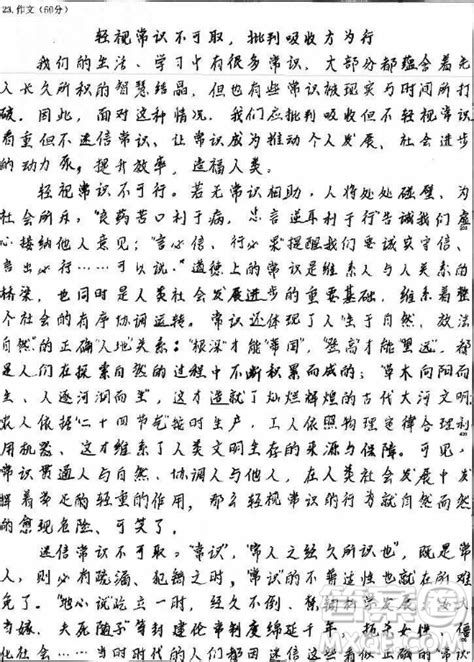 23.作文(60分)
轻视常识不可取，批判吸收方为行
我们的生活、学习中有很多常识，大部分都蕴含着先
人长久所积的智慧结晶，但也有些常识被现实与时间所打
破。因此，面对这种情况，我们应批判吸收但不轻视常识
看重但不迷信常识、让常识成为推动个人发展、社会进步
的动力泵，提升效率，造福人类。
轻视常识不可行。若无常识相助，人将处处碰壁、为
社会所斥，"良药苦口利于病，忠言逆耳利于行"告诫我们虚
心接纳他人意见；"言必信、行必果"提醒我们要诚实守信、
言出必行……可以说，道德上的常识是维系人与人关系的
桥梁，也同时是人类社会发展进步的重要基础，维系着整
个社会的有序协调运转。常识还体现了人"生于自然，放法
自然"的正确"人地"关系："根深"才能"蒂固"，"登高才能"望远"，都
是人们在探索自然的过程中不断积累而成的；"草木向阳而
生、人逐河湖而生"，这才造就了灿烂辉煌的古代大河文明
农人依据"二十四节气"按时生产，工人依照物理定律合理利
用机器、这才维系了人类文明生存的来源与保障。可见，
常识贯通人与自然、协调人与他人，在人类社会发展中发
挥着举足轻重的作用，那么轻视常识的行为就自然而然
的愈现危险、可笑了。
迷信常识不可取。"常识"，"常人之经久所识也"，既是常
人，则必有疏漏、犯错之时，"常识"的不普适性也就在所难
免了。"地心说"屹立一时，经久不倒、
发展，
夫死随子"等封建伦常制度绵延千年，
女性，僵
化社会……当时时代的人们都因迷信这些看似正确的"常识